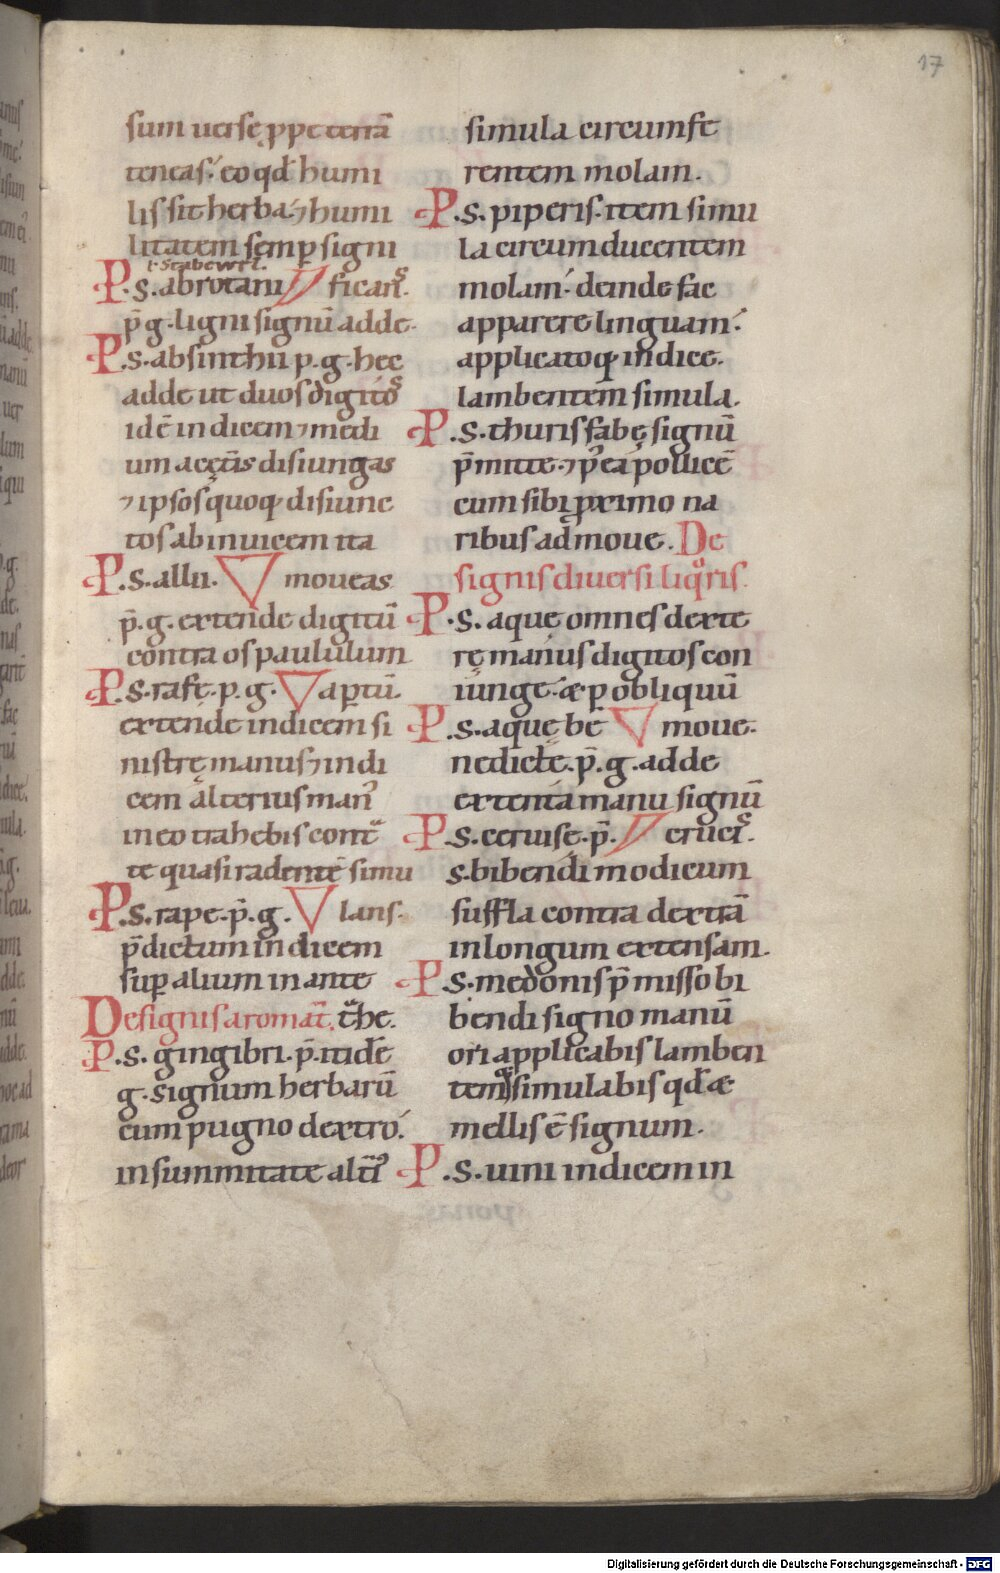 17
sum uersę ꝓpe terrā
teneas. eo qđ humi
lis sit herba. ⁊ humi
litatem semꝑ signi
ł stabewrt.
P.s. abrotani ficant̉.
p̄ g. ligni signū adde.
P.s. absinthii p. g. hec
adde ut duos digitos
idē indicem ⁊ medi
um
disiungas
⁊ ipsos quoq; disiunc
tos ab inuicem ita
P.s. allii. moueas
p̄. g. extende digitū
contra os paululum
P.s. rafę. p. g. apertū.
extende indicem si
nistrę manus ⁊ indi
cem alterius man᾽
in eo trahebis
te quasi radentē simu
P.s. rape. p̄. g. lans.
p̄dictum indicem
suꝑ alium in ante
De signis aromat̄.
the.
P.s. gingibri. p̄. itide
g. signum herbarū
cum pugno dextro.
in summitate
simula circumfe
rentem molam.
P.s. piperis. item simu
la circumducentem
molam. deinde fac
apparere linguam.
applicatoq; indice.
lambentem simula.
P.s. thuris fabę signū
p̄mitte. ⁊ pollicē
cum sibi ꝓximo na
ribus admoue. De
signis diuersi liqͦris.
P.s. aque omnes dexte
rę manus digitos con
iunge. & ꝑ obliquū
P.s. aquę be moue.
nedictę. p̄. g. adde
extenta manu signū
P.s. ceruise. p̄. cruci̾.
s. bibendi modicum
suffla contra dextrā
in longum extensam.
P.s. medonis p̄misso bi
bendi signo manū
ori applicabis lamben
tem simulabis qđ &
mellis ē signum.
P.s. uini indicem in
Digitalisierung gefördert durch die Deutsche Forschungsgemeinschaft - DFG